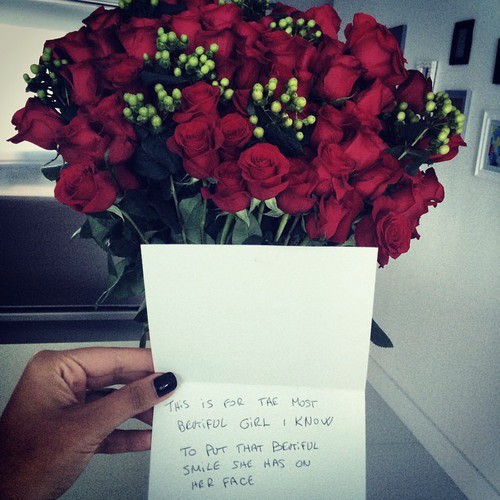 THIS IS FOR THE MOST
BEUTIFUL GIRL I KNOW
TO PUT THAT BEUTIFUL
SMILE SHE HAS ON
HER FACE